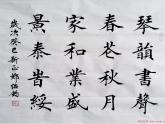 琴韻書聲
春花秋月
家和業盛
景泰旹綏
歲次癸巳新正鄭伯